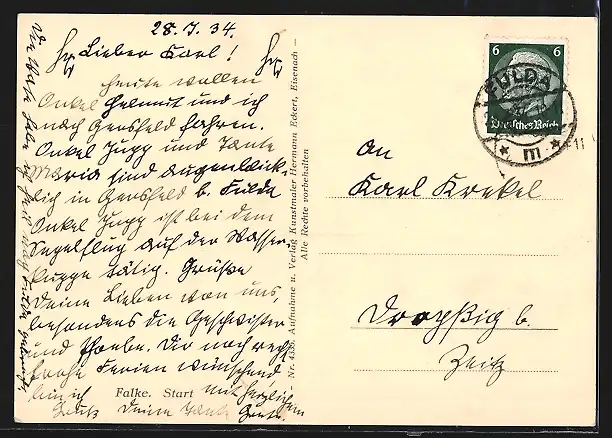 28. 7. 34.
Lieber Karl!
heute wollen
Onkel Helmut und ich
nach Gersfeld fahren.
Onkel Jupp und Tante
Maria sind augenblick-
lich in Gersfeld b. Fulda
Onkel Jupp ist bei dem
Segelflug auf der Wasser-
kuppe tätig. Grüße
Deine Lieben von uns,
besonders die Geschwister
und Phoebe. Dir noch recht
frohe Ferien wünschend
bin ich mit herzlichem
Deine Tante
Falke. Start
Nr. 4336. Aufnahme u. Verlag Kunstmaler Hermann Eckert, Eisenach —
Alle Rechte vorbehalten
6 6
Deutsches Reich
FULDA
* m *
An
Karl Krekel
Droyßig b.
Zeitz